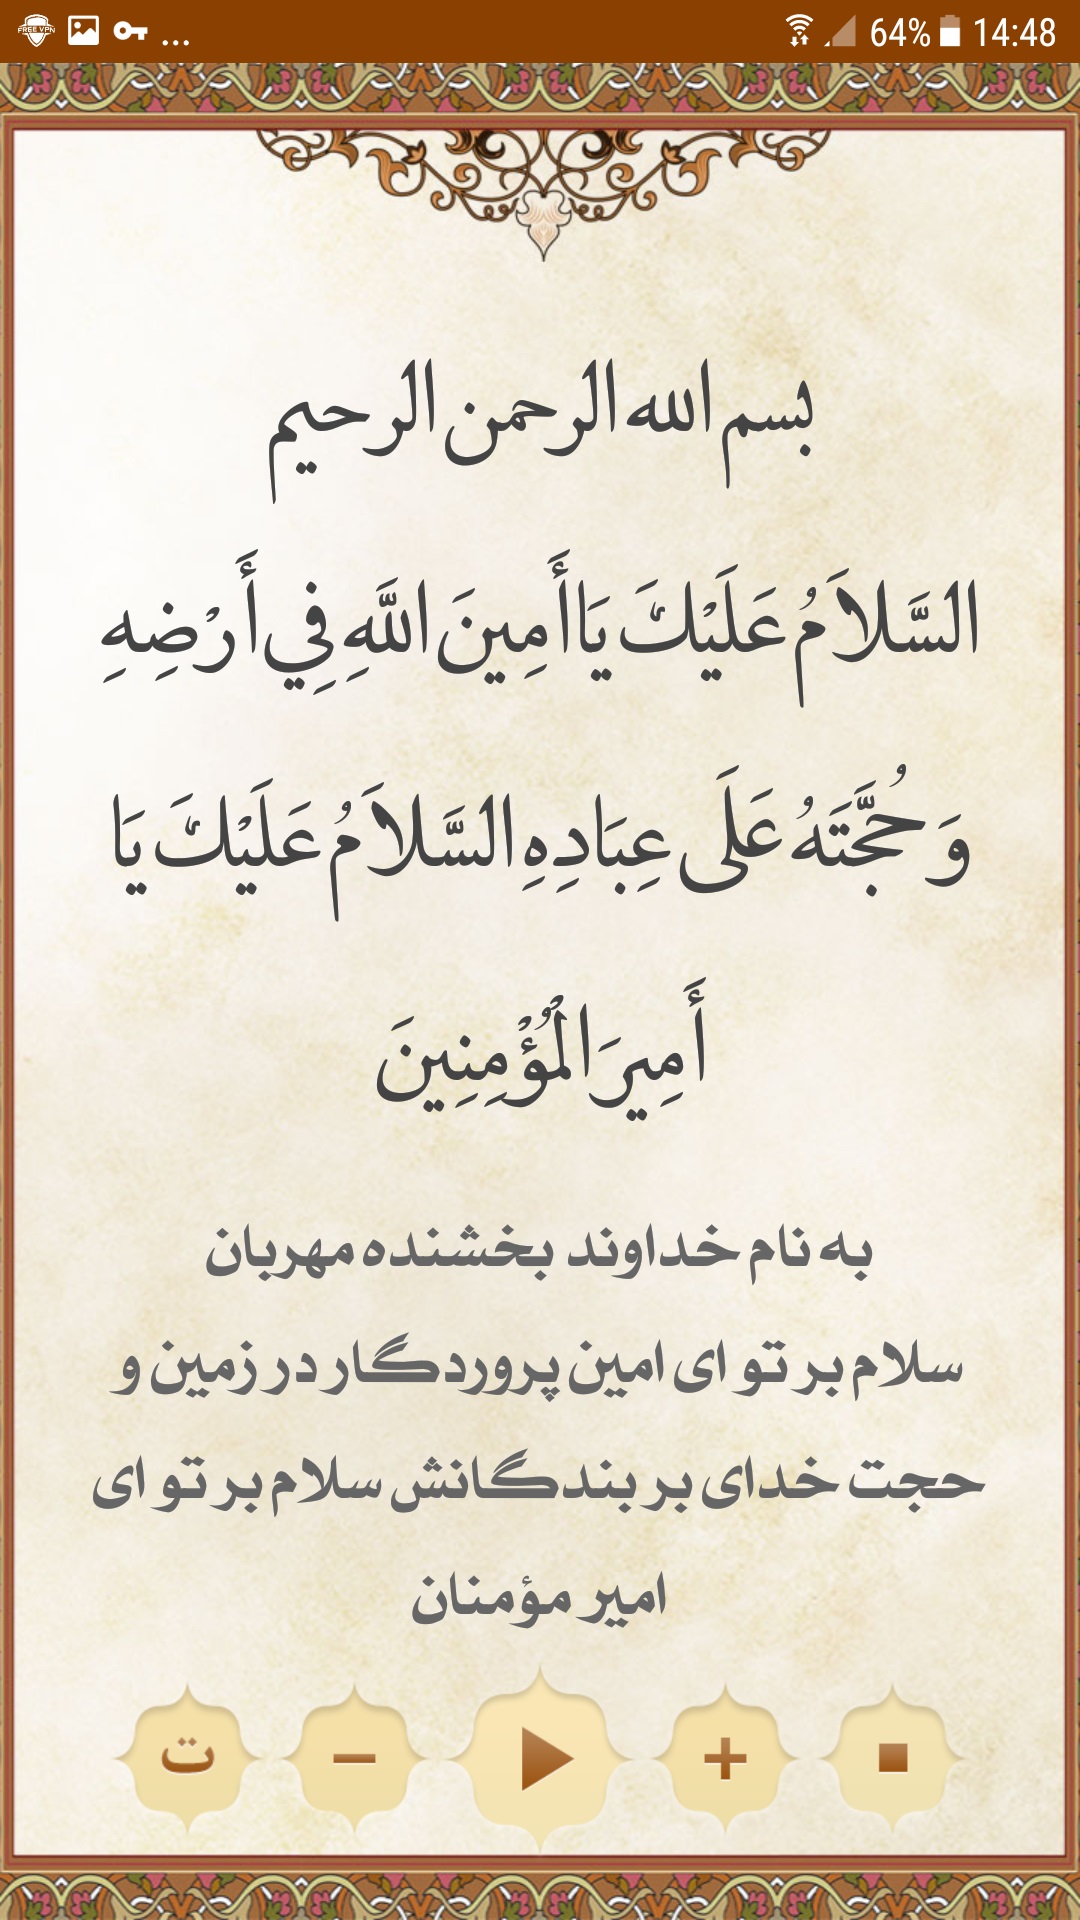 FREE VPN ... 64% 14:48
بسم الله الرحمن الرحیم
السَّلاَمُ عَلَيْكَ يَا أَمِينَ اللَّهِ فِي أَرْضِهِ
وَ حُجَّتَهُ عَلَى عِبَادِهِ السَّلاَمُ عَلَيْكَ يَا
أَمِيرَ الْمُؤْمِنِينَ
به نام خداوند بخشنده مهربان
سلام بر تو ای امین پروردگار در زمین و
حجت خدای بر بندگانش سلام بر تو ای
امیر مؤمنان
ت − +